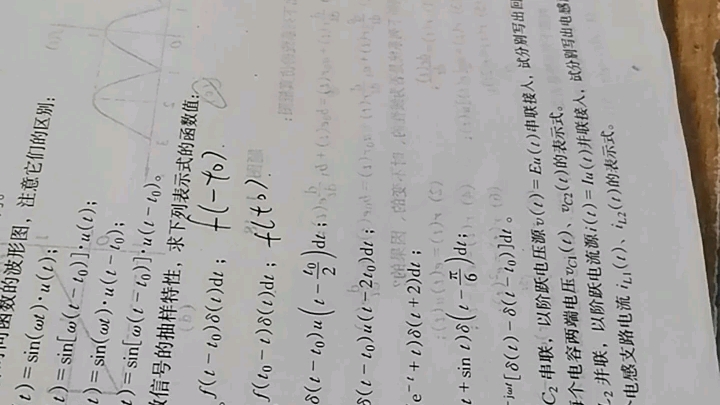 间函数的波形图，注意它们的区别：
t)=sin(ωt)·u(t)；
t)=sin[ω(t−t₀)]·u(t)；
t)=sin(ωt)·u(t−t₀)；
t)=sin[ω(t−t₀)]·u(t−t₀)。
信号的抽样特性，求下列表示式的函数值：
f(t−t₀)δ(t)dt； f(−t₀).
f(t₀−t)δ(t)dt； f(t₀).
δ(t−t₀)u(t−t₀/2)dt；
δ(t−t₀)u(t−2t₀)dt；
e⁻ᵗ+t)δ(t+2)dt；
t+sin t)δ(t−π/6)dt；
−jωt[δ(t)−δ(t−t₀)]dt。
C₂ 串联，以阶跃电压源 v(t)=Eu(t)串联接入，试分别写出回
个电容两端电压 vC1(t)、vC2(t)的表示式。
并联，以阶跃电流源 i(t)=Iu(t)并联接入，试分别写出电感
电感支路电流 iL1(t)、iL2(t)的表示式。